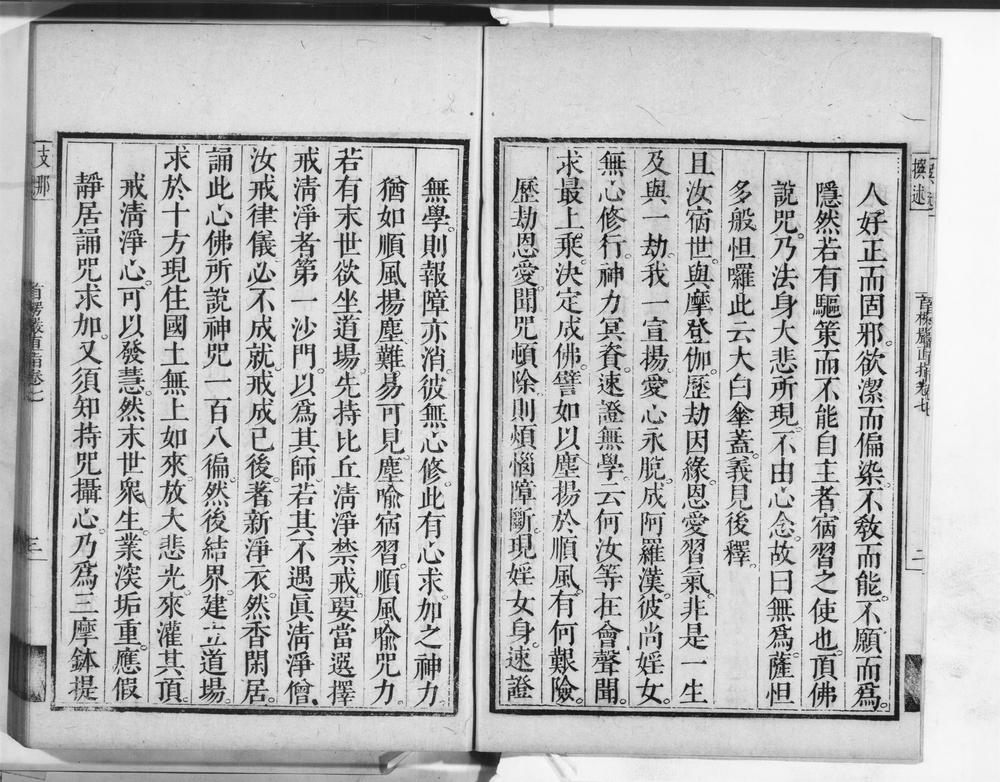 撰述
首楞嚴直指卷七
二
人好正而固邪。欲潔而偏染。不敎而能。不願而爲。
隱然若有驅策而不能自主者。宿習之使也。頂佛
說咒。乃法身大悲所現。不由心念。故曰無爲。薩怛
多般怛囉。此云大白傘蓋。義見後釋。
且汝宿世。與摩登伽。歷劫因緣。恩愛習氣。非是一生
及與一劫。我一宣揚。愛心永脫。成阿羅漢。彼尚婬女。
無心修行。神力冥資。速證無學。云何汝等。在會聲聞。
求最上乘。決定成佛。譬如以塵揚於順風。有何艱險。
歷劫恩愛。聞咒頓除。則煩惱障斷。現婬女身。速證
無學。則報障亦消。彼無心修。此有心求。加之神力。
猶如順風揚塵難易可見。塵喻宿習。順風喻咒力。
若有末世欲坐道場。先持比丘淸淨禁戒。要當選擇
戒淸淨者第一沙門。以爲其師。若其不遇眞淸淨僧。
汝戒律儀必不成就。戒成已後。著新淨衣。然香閑居。
誦此心佛所說神咒一百八徧。然後結界。建立道場。
求於十方現住國土無上如來。放大悲光。來灌其頂。
戒淸淨心。可以發慧。然末世衆生。業深垢重。應假
靜居誦咒求加。又須知持咒攝心。乃爲三摩鉢提
支那
首楞嚴直指卷七
三